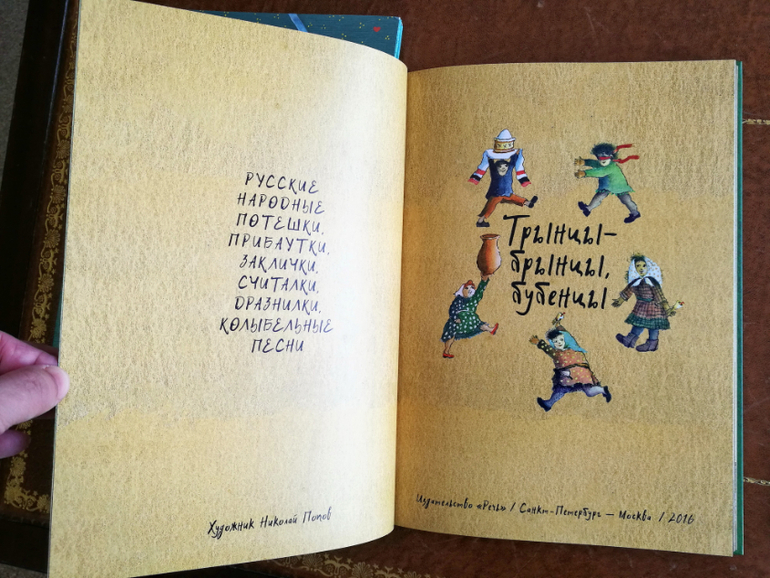 РУССКИЕ
НАРОДНЫЕ
ПОТЕШКИ,
ПРИБАУТКИ,
ЗАКЛИЧКИ,
СЧИТАЛКИ,
ДРАЗНИЛКИ,
КОЛЫБЕЛЬНЫЕ
ПЕСНИ
Художник Николай Попов
Трынцы-
брынцы,
бубенцы
Издательство «Речь» / Санкт-Петербург — Москва / 2016